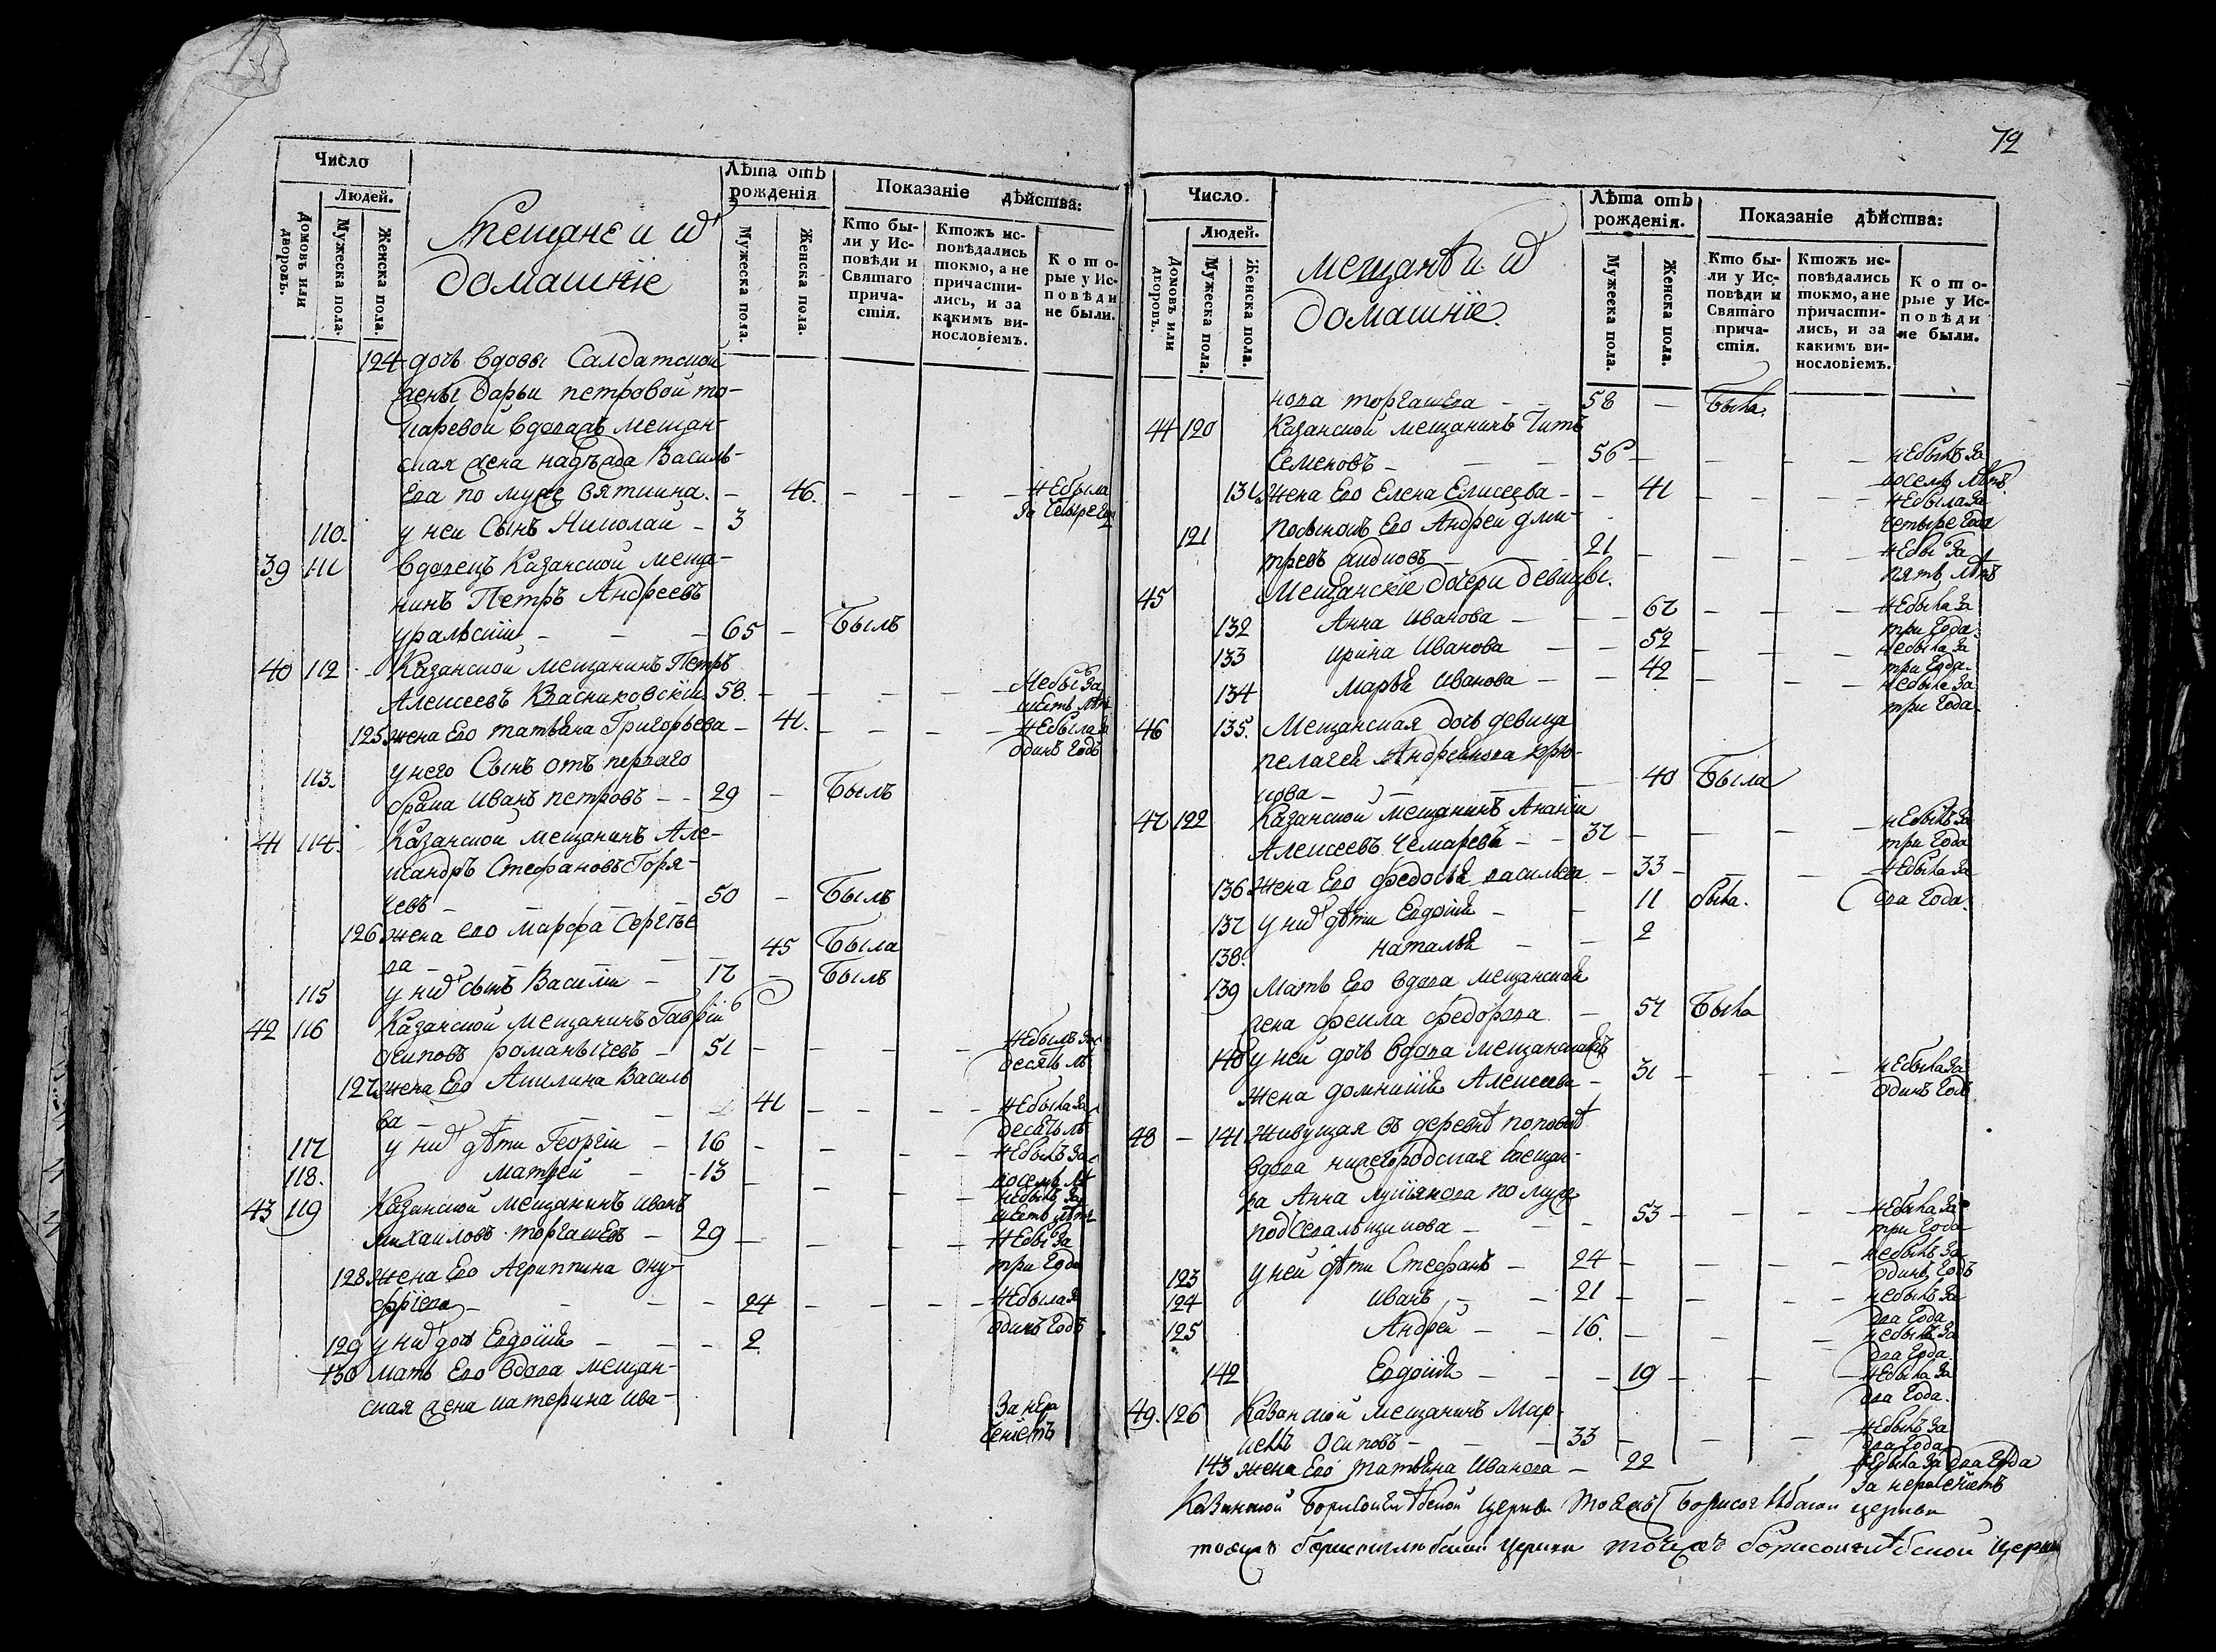 Число
Людей.
Домовъ или дворовъ.
Мужеска пола.
Женска пола.
Мещане и их
домашніе
Лѣта отъ рожденія
Мужеска пола.
Женска пола.
Показаніе дѣйства:
Кто были у Исповѣди и Святаго причастія.
Ктожъ исповѣдались токмо, а не причастились, и за какимъ винословіемъ.
Которые у Исповѣди не были.
124 дочь вдовы Салдатской
жены дарьи петровой то-
каревой вдоважъ мещан-
ская жена надѣжда Василь-
ева по муже вяткина. - 46. - - - - небыла
за четыре года
110. у ней Сынъ Николай - 3
39 111 вдовецъ Казанской меща-
нинъ Петръ Андреевъ
уральскій - - - 65 - Былъ
40 112 - Казанской мещанинъ Петръ
Алексеевъ Квасниковскій 58. - - - - Небылъ за
шесть лѣтъ
125 жена Его татьяна Григорьева - 41. - - - - Небыла за
одинъ годъ
113. у него Сынъ отъ перваго
брака иванъ петровъ - - 29 - Былъ
41 114. Казанской мещанинъ Але-
ксандръ Стефановъ Горя-
чевъ - - - 50 - Былъ
126 жена его марфа Сергѣе
ва - - - - 45 Была
115 у них сынъ Василій - 17 - Былъ
42 116 Казанской мещанинъ Гаврій
осиповъ романычевъ - 51 - - - - Небылъ за
десять лѣ
127 жена Его Акилина Василь
ва - - - 41 - - - - Небыла за
десять лѣ
117 у них дѣти Георгій - 16 - - - - Небылъ за
восемь лѣ
118. матвей - - 13 - - - - небылъ за
шесть лѣтъ
43 119 Казанской мещанинъ иванъ
михаиловъ торгашевъ - 29 - - - - Небылъ за
три года
128 жена Его Агриппина ону-
фріева - - - - 24 - - - - Небыла за
одинъ годъ
129 у них дочь Евдокія - - - 2.
130 мать Его вдова мещан-
ская жена катерина ива-
За нера
ченіемъ
72
Число.
Людей.
Домовъ или дворовъ.
Мужеска пола.
Женска пола.
мещанѣ и их
домашніе.
Лѣта отъ рожденія.
Мужеска пола.
Женска пола.
Показаніе дѣйства:
Кто были у Исповѣди и Святаго причастія.
Ктожъ исповѣдались токмо, а не причастились, и за какимъ винословіемъ.
Которые у Исповѣди не были.
нова торгашева - - 58 - Была.
44 120 Казанской мещанинъ Титъ
Семеновъ - - - 56 - - - - небылъ за
восемь лѣтъ
131 Жена Его Елена Елисеева - - 41 - - - - небыла за
четыре года
121 Посынокъ Его Андрей дми-
тревъ - - - 21 - - - - небылъ за
пять лѣтъ
45 Мещанскіе дочери девицы.
132 Анна иванова - - - 67 - - - небыла за
три года.
133 ирина иванова - - 52 - - - небыла за
три года.
134 марья иванова - - 42 - - - небыла за
три года.
46 135. Мещанская дочь девица
пелагея Андреянова крю-
кова - - - 40 Была
47 122 Казанской мещанинъ Ананій
Алексеевъ Чемаревъ - - 37 - - - - небылъ за
три года
136 жена Его федосья васильева - 33 - - - Небыла за
два года.
137 у них дѣти Евдокія - - 11 была.
138. наталья - - 2
139 Мать Его вдова мещанская
жена фекла федорова - 57 Была
140 у ней дочь вдова мещанскаяжъ
жена домникія Алексеева - 31 - - - небыла за
одинъ годъ
48 - 141 Живущая въ деревнѣ поповкѣ
вдова нижегородская
Анна лукіянова по муже
- - - 53 - - - - небыла за
три года
123 у ней дѣти Стефанъ - 24 - - - - небылъ за
одинъ годъ
124 иванъ - - 21 - - - - небылъ за
два года
125 Андрей - - 16. - - - - небылъ за
два года.
142 Евдокія - - - 19 - - - небыла за
два года.
49. 126 Казанской мещанинъ Мар-
келъ осиповъ - - - 33 - - - - небылъ за
два года
143 жена Его татьяна Иванова - 22 Небыла за два года
за нераченіемъ
Казанской Борисоглѣбской церкви тояжъ Борисоглѣбской церкви
тояжъ борисоглѣбской церкви тояжъ борисоглѣбской церкви